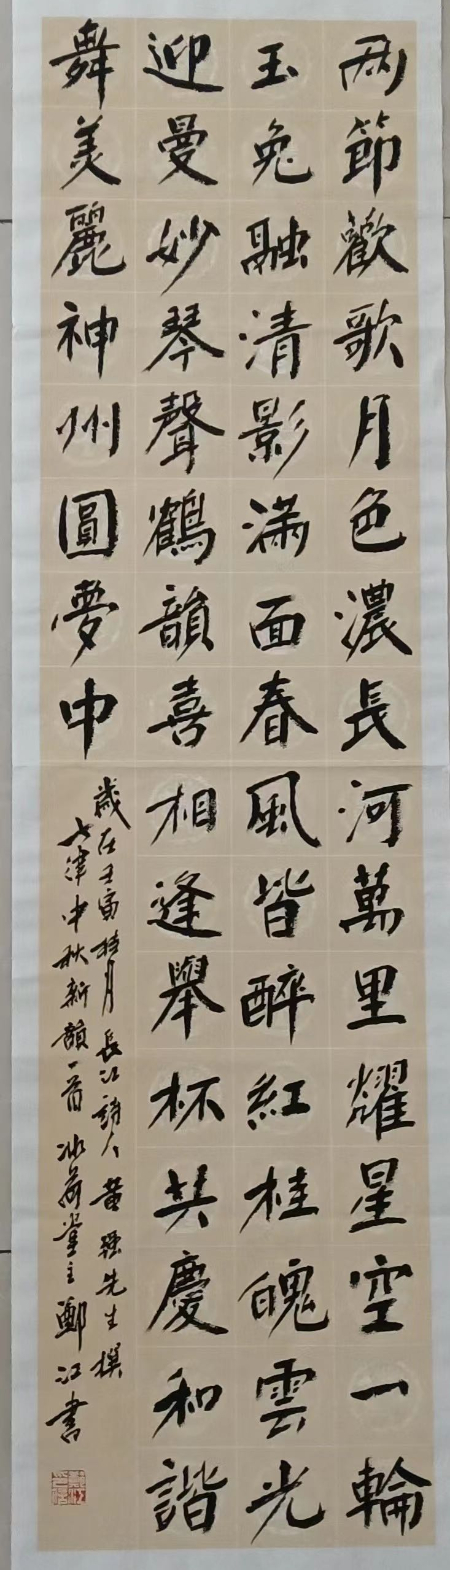 兩節歡歌月色濃長河萬里耀星空一輪
玉兔融清影滿面春風皆醉紅桂魄雲光
迎曼妙琴聲鶴韻喜相逢舉杯共慶和諧
舞美麗神州圓夢中
歲在壬寅桂月長江詩人黃强先生撰
七律中秋新韻一首冰荷堂主鄭江書